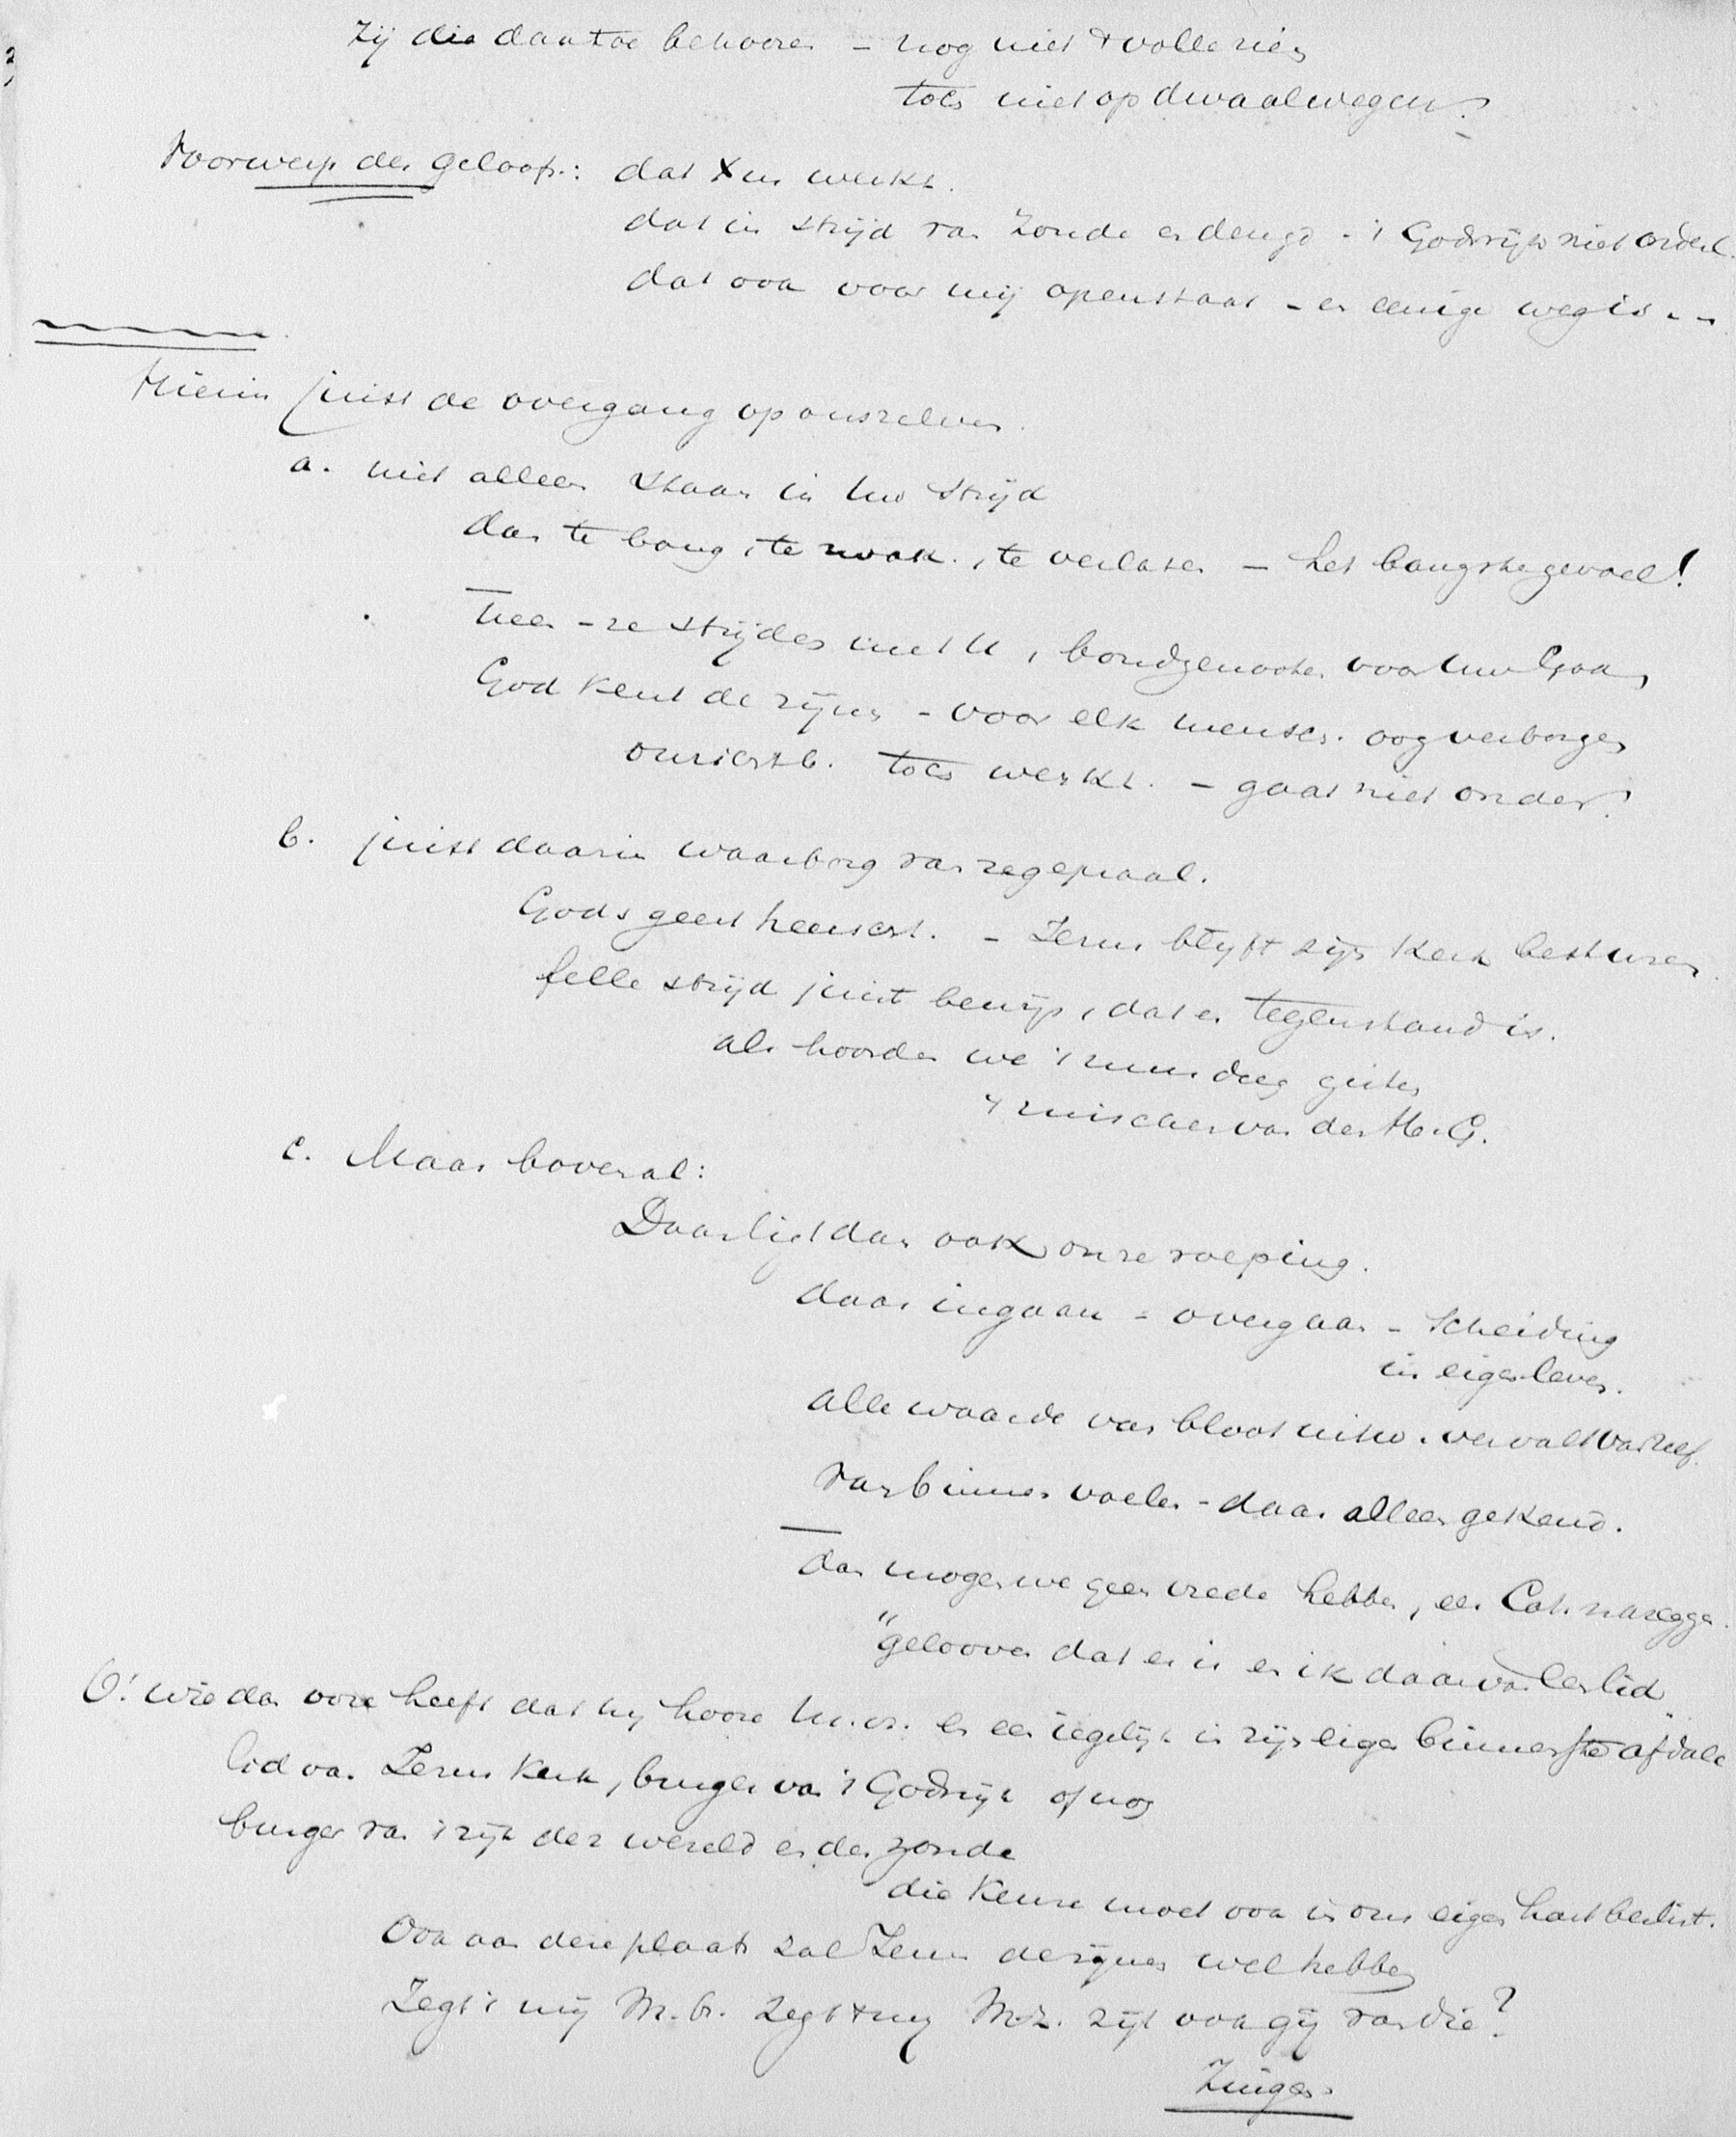 Zij die daartoe behooren – nog niet 't volle zien
toch niet op dwaalwegen!
Voorwerp des geloofs: dat X en werkt.
dat in strijd van zonde en deugd – 't Godsrijk niet onderl.
dat ook voor mij openstaat – er eenige weg is . .
Hierin juist de overgang op onszelven.
a. niet alleen staan in uw strijd
dan te bang, te zwak, te verlaten – het bangste gevoel!
Neen – ze strijden met U, bondgenooten voor uw God
God kent de zijnen – voor elk mensch. oog verborgen
onzichtb. toch werkt. – gaat niet onder!
b. juist daarin waarborg van zegepraal.
Gods geest heerscht. – Jezus blijft zijn Kerk besturen.
felle strijd juist bewijs, dat er tegenstand is.
als hoorden we 't
't ruischen van den H. G.
c. Maar bovenal:
Daar ligt dan ook onze roeping.
daar ingaan = overgaan – scheiding
in eigen leven.
alle waarde van bloot uitw. vervalt van zelf.
Van binnen voelen – daar alleen gekend.
Dan mogen we geen vrede hebben, een Cat. nazeggen.
"gelooven dat er is en ik daarvan een lid"
O! wie dan ooren heeft dat hij hoore M. . en een iegelijk in zijn eigen binnenste afdale
lid van Jezus Kerk, burger van 't Godsrijk of nog
burger van 't rijk der wereld en der zonde
die keuze moet ook in ons eigen hart beslist.
Ook aan deze plaats zal Jezus de zijnen wel hebben
Zegt 't mij M. br. zegt 't mij M. z. zijt ook gij van die?
Zingen